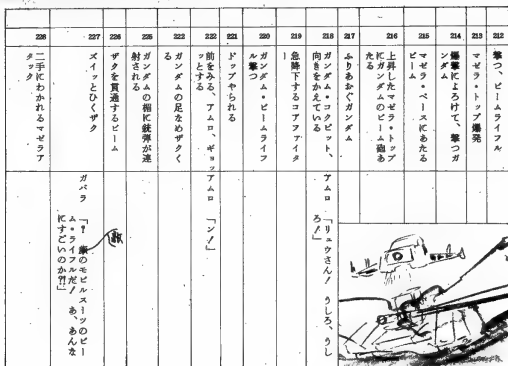 212
撃つ、ビームライフル
213
マゼラ・トップ爆発
214
爆撃によろけて、撃つガ
ンダム
215
マゼラ・ベースにあたる
ビーム
216
上昇したマゼラ・トップ
にガンダムのビーム砲あ
たる
217
ふりあおぐガンダム
218
ガンダム・コクピット、
向きをかえている
アムロ 「リュウさん! うしろ、うし
ろ!」
219
急降下するコアファイタ
ー
220
ガンダム・ビームライフ
ル撃つ
221
ドップやられる
222
前をみる、アムロ、ギョ
ッとする
アムロ 「ン!」
222
ガンダムの足なめザクく
る
225
ガンダムの楯に銃弾が連
射される
226
ザクを貫通するビーム
227
ズイッとひくザク
ガバラ 「? のモビルスーツのビー
ム・ライフルだ! あ、あんな
にすごいのか?!」
敵
228
二手にわかれるマゼラア
タック